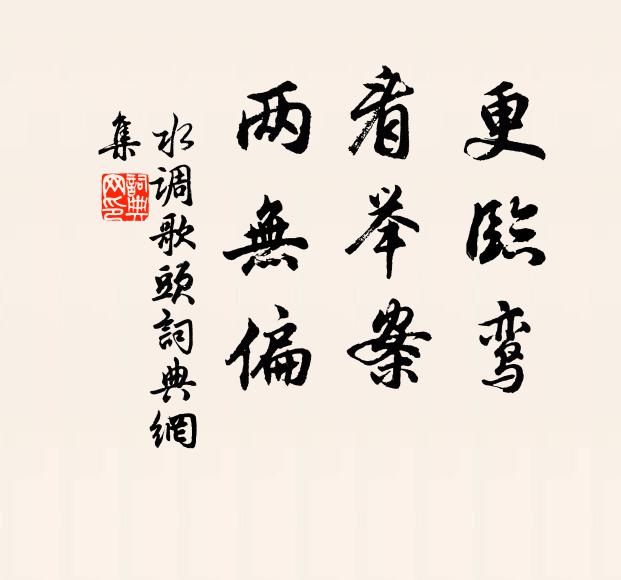 更臨鸾
看举案
两無偏
水调歌頭詞典網
集
詞典
网印